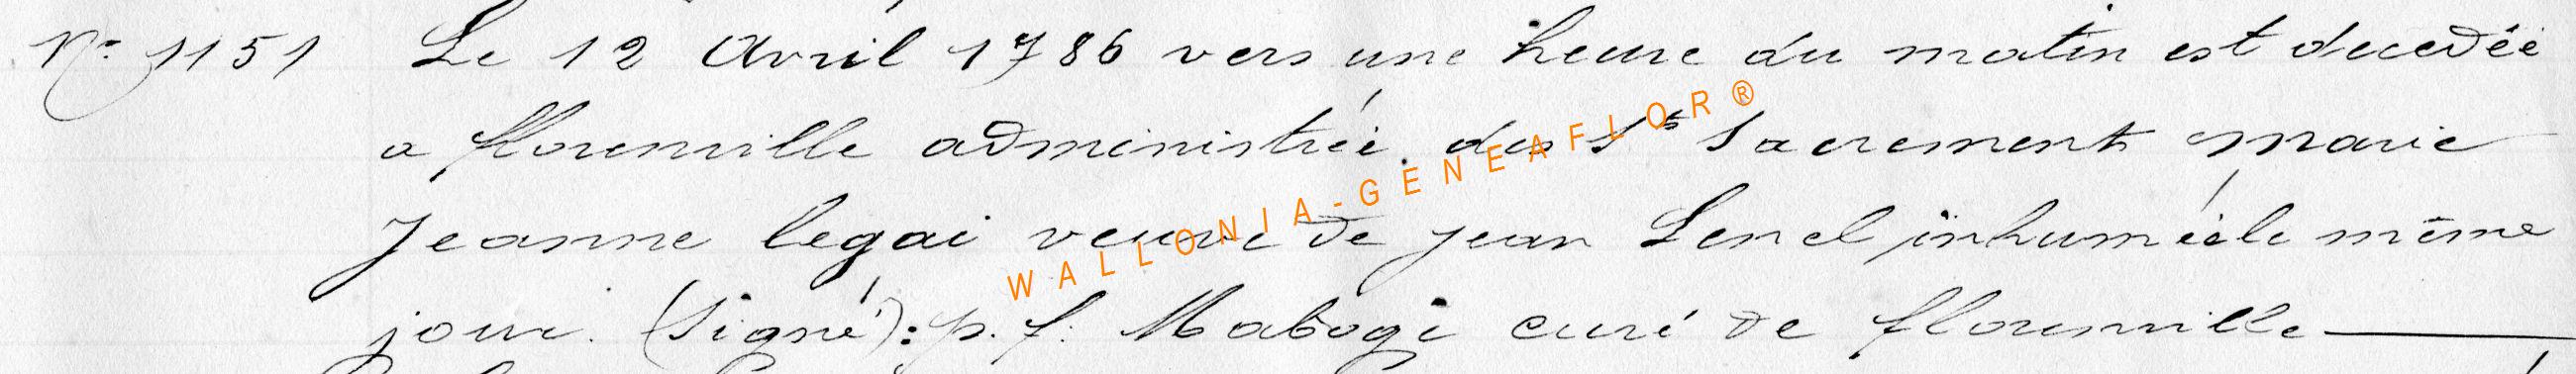 N° 1151 Le 12 Avril 1786 vers une heure du matin est decedée
a florenville administrée des Sts Sacrement Marie
Jeanne legai veuve de jean Lenel inhumée le même
jour. (Signé): p. f. Mabogi curé de florenville
WALLONIA-GENEAFLOR®